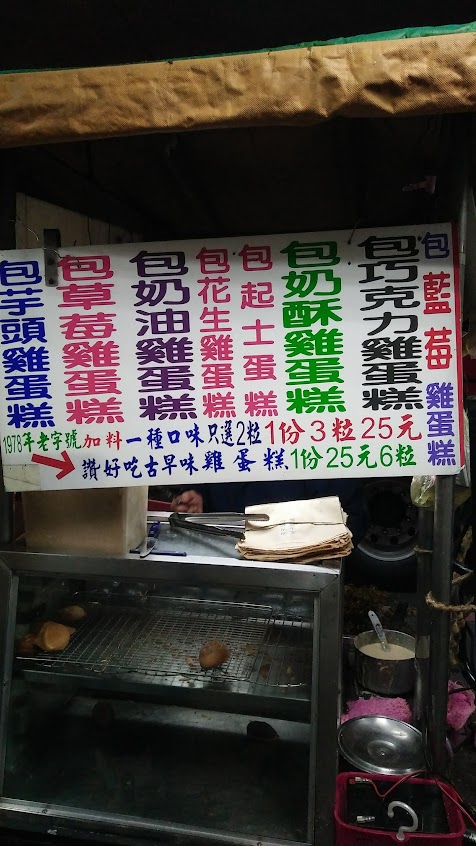 包芋頭雞蛋糕
包草莓雞蛋糕
包奶油雞蛋糕
包花生雞蛋糕
包起士蛋糕
包奶酥雞蛋糕
包巧克力雞蛋糕
包藍莓雞蛋糕
1978年老字號加料一種口味只選2粒1份3粒25元
讚好吃古早味雞蛋糕1份25元6粒